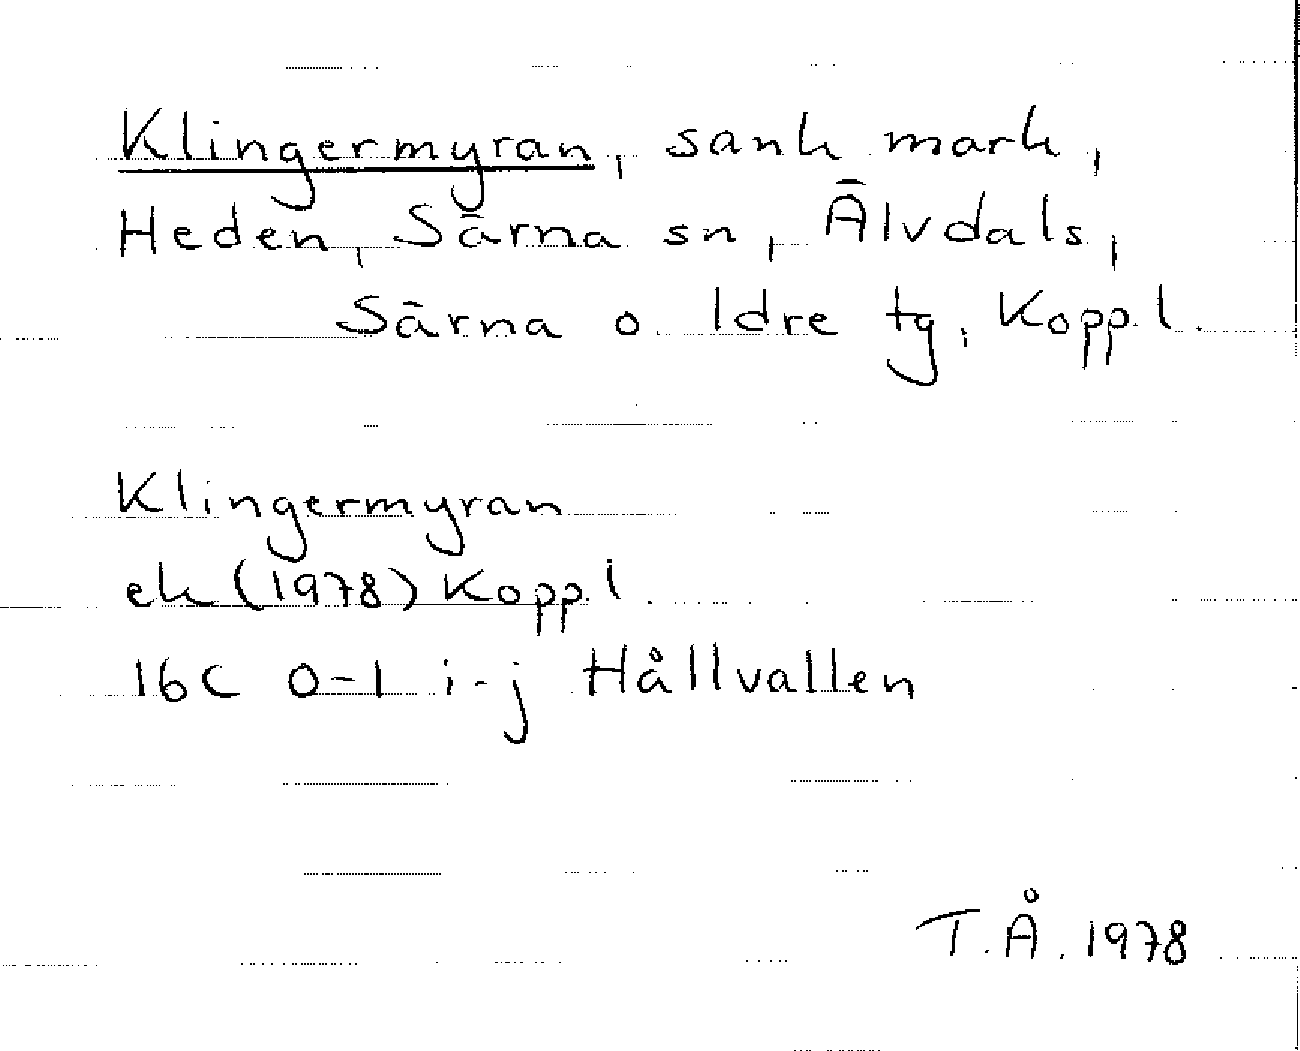 Klingermyran, sank mark,
Heden, Särna sn, Älvdals,
Särna o. Idre tg, Kopp.l.
Klingermyran
ek (1978) Kopp.l.
16C 0-1 i-j Hållvallen
T.Å. 1978